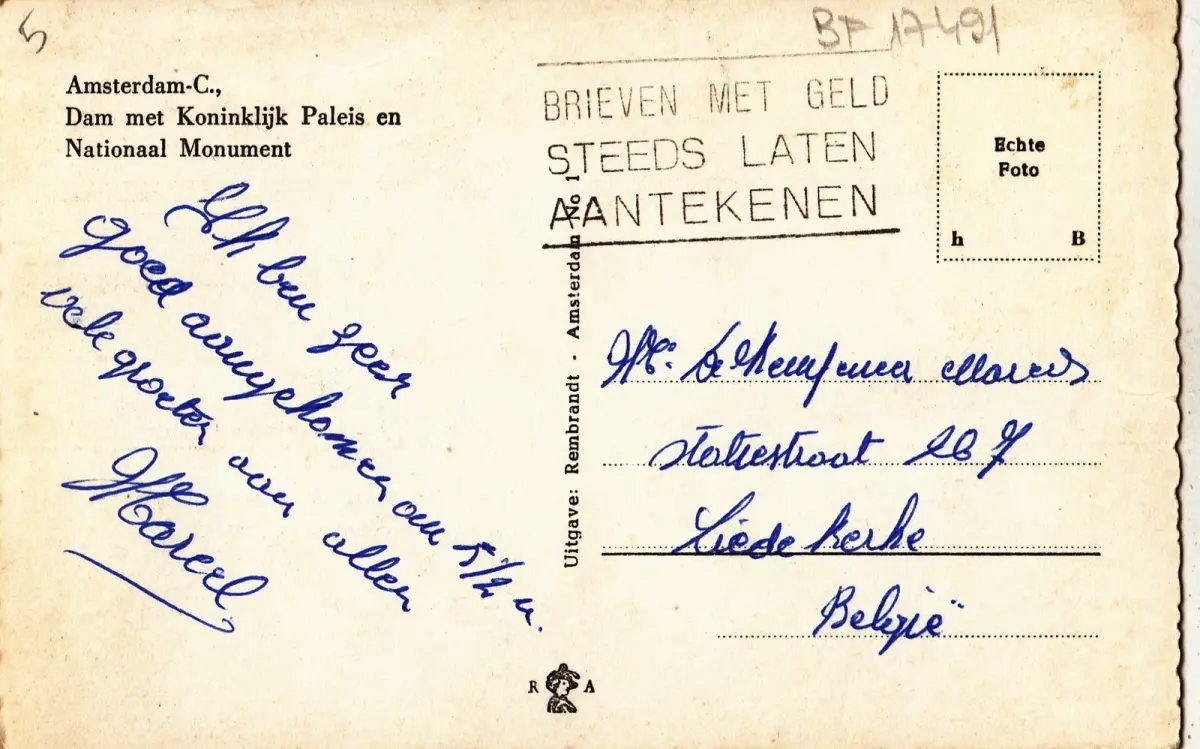 5
BP 17491
Amsterdam-C.,
Dam met Koninklijk Paleis en
Nationaal Monument
BRIEVEN MET GELD
STEEDS LATEN
AANTEKENEN
Echte
Foto
h B
Ik ben zeer
goed aangekomen om 5 1/2 u.
vele groeten aan allen
Marcel
Uitgave: Rembrandt - Amsterdam No 1
De
statiestraat 267
Liedekerke
België
R A